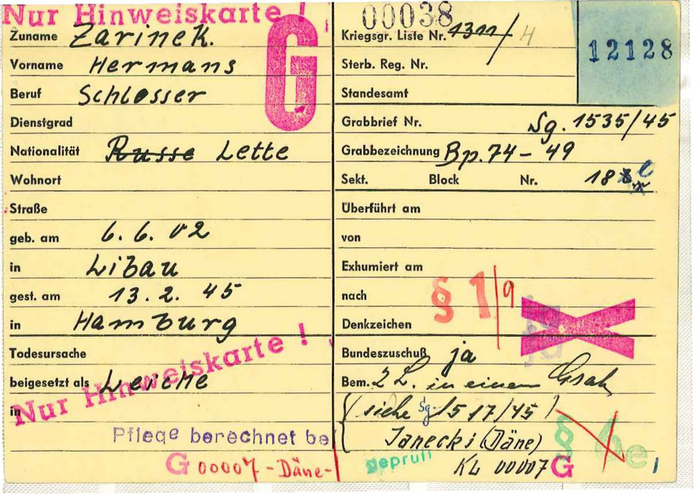 Nur Hinweiskarte !
Zuname Zarinek.
Vorname Hermans
Beruf Schlosser
G
Dienstgrad
Nationalität Russe Lette
Wohnort
Straße
geb. am 6. 6. 02
in Libau
gest. am 13. 2. 45
in Hamburg
Todesursache
beigesetzt als Leiche
in
Nur Hinweiskarte !
Pflege berechnet bei
G 00007 -Däne-
00038
Kriegsgr. Liste Nr. 1311/H
12128
Sterb. Reg. Nr.
Standesamt
Grabbrief Nr. Sg. 1535/45
Grabbezeichnung Bp. 74 - 49
Sekt. Block Nr. 18
Überführt am
von
Exhumiert am
nach
§ 1/9
Denkzeichen
Bundeszuschuß ja
Bem. 2 L. in einem Grab
(siehe Sg 1517/45)
Janecki (Däne)
geprüft
KL 00007 G